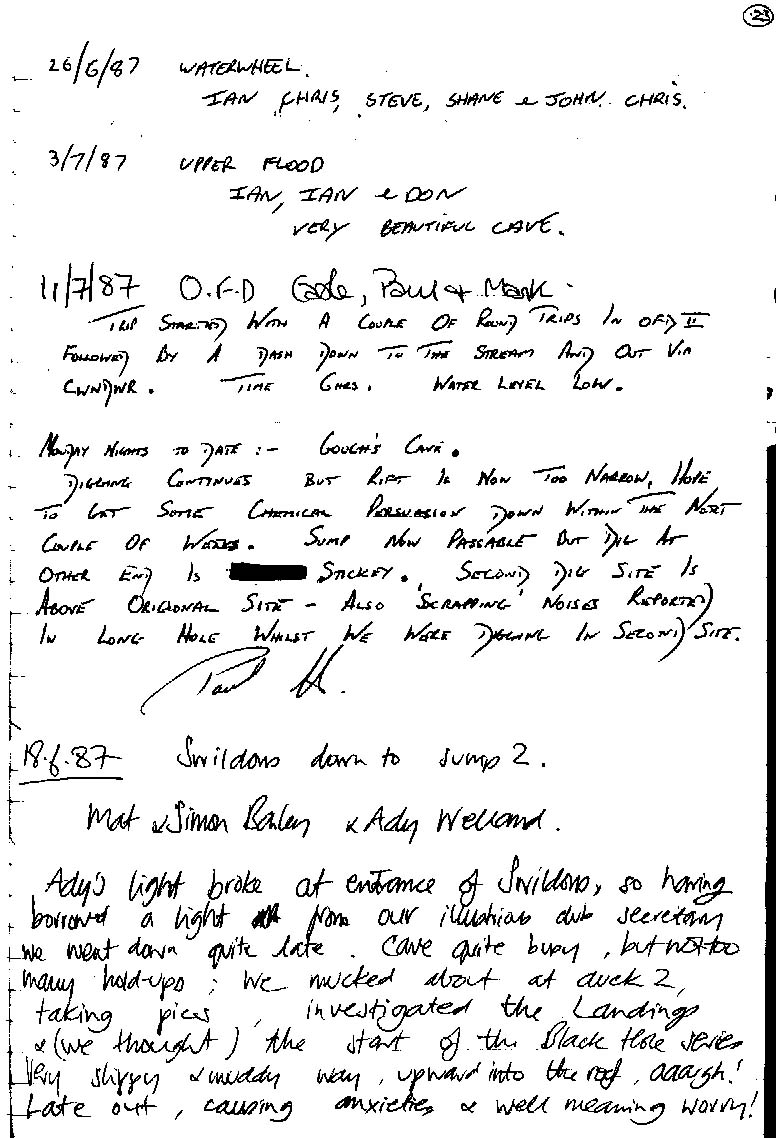 23
26/6/87 WATERWHEEL.
IAN, CHRIS, STEVE, SHANE & JOHN. CHRIS.
3/7/87 UPPER FLOOD
IAN, IAN & DON
VERY BEAUTIFUL CAVE.
11/7/87 O.F.D Eade, Paul & Mark.
TRIP STARTED WITH A COUPLE OF ROUND TRIPS IN OFD II
FOLLOWED BY A DASH DOWN TO THE STREAM AND OUT VIA
CWNDWR. TIME 6HRS. WATER LEVEL LOW.
MONDAY NIGHTS TO DATE :- GOUGH'S CAVE.
DIGGING CONTINUES BUT RIFT IS NOW TOO NARROW, HOPE
TO GET SOME CHEMICAL PERSUASION DOWN WITHIN THE NEXT
COUPLE OF WEEKS. SUMP NOW PASSABLE BUT DIG AT
OTHER END IS STICKEY. SECOND DIG SITE IS
ABOVE ORIGIONAL SITE - ALSO 'SCRAPPING' NOISES REPORTED
IN LONG HOLE WHILST WE WERE DIGGING IN SECOND SITE.
Paul
18.6.87 Swildons down to sump 2.
Mat & Simon Bailey & Ady Welland.
Ady's light broke at entrance of Swildons, so having
borrowed a light from our illustrious club secretary
we went down quite late. Cave quite busy, but not too
many hold-ups; We mucked about at duck 2,
taking pics, investigated the Landings
& (we thought) the start of the Black Hole series
Very slippy & muddy way, upward into the roof, aaargh!
Late out, causing anxieties & well meaning worry!